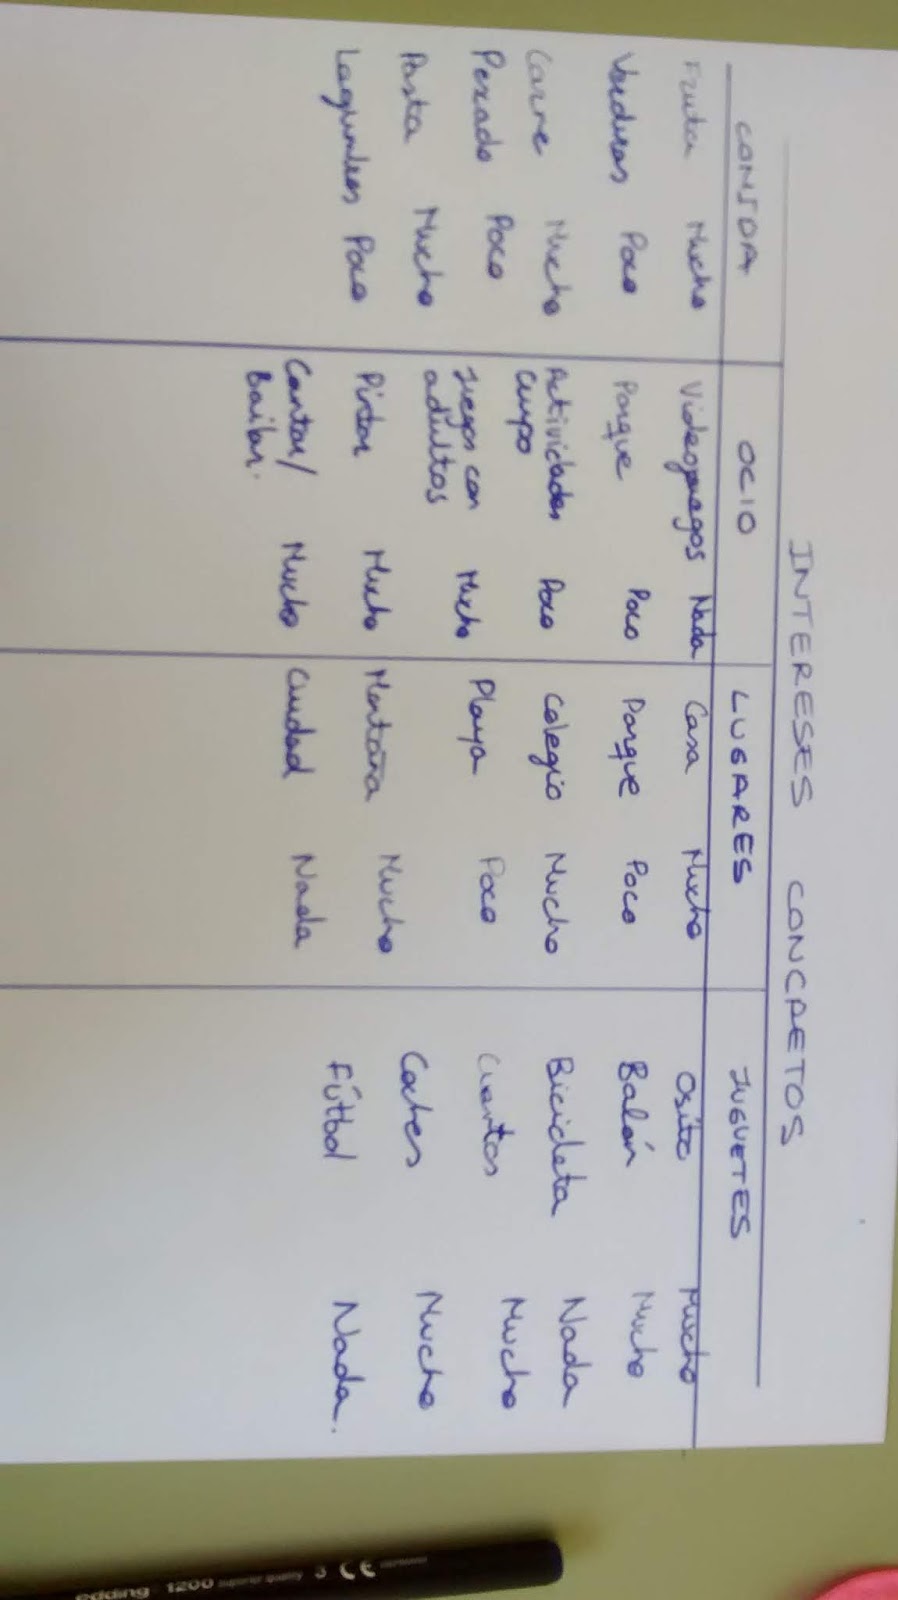 INTERESES CONCRETOS
COMIDA OCIO LUGARES JUGUETES
Fruta Mucho Videojuegos Nada Casa Mucho Osito Mucho
Verduras Poco Parque Poco Parque Poco Balón Mucho
Carne Mucho Actividades Poco Colegio Mucho Bicicleta Nada
grupo
Pescado Poco Juegos con Mucho Playa Poco Cuentos Mucho
adultos
Pasta Mucho Pintar Mucho Montaña Mucho Coches Mucho
Legumbres Poco Cantar/ Mucho Ciudad Nada Fútbol Nada.
Bailar.
edding 1200 superior quality 3 CE